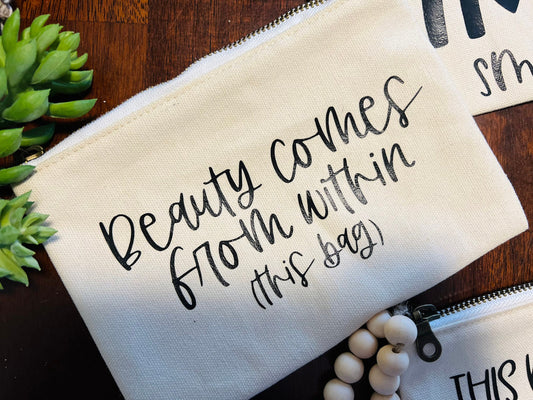 Beauty comes
from within
(this bag)
THIS